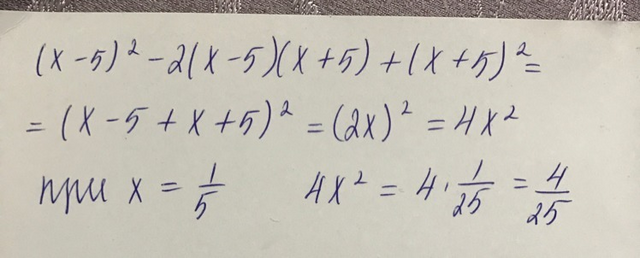 (x-5)² - 2(x-5)(x+5) + (x+5)² =
= (x-5+x+5)² = (2x)² = 4x²
при x = 1/5    4x² = 4 · 1/25 = 4/25